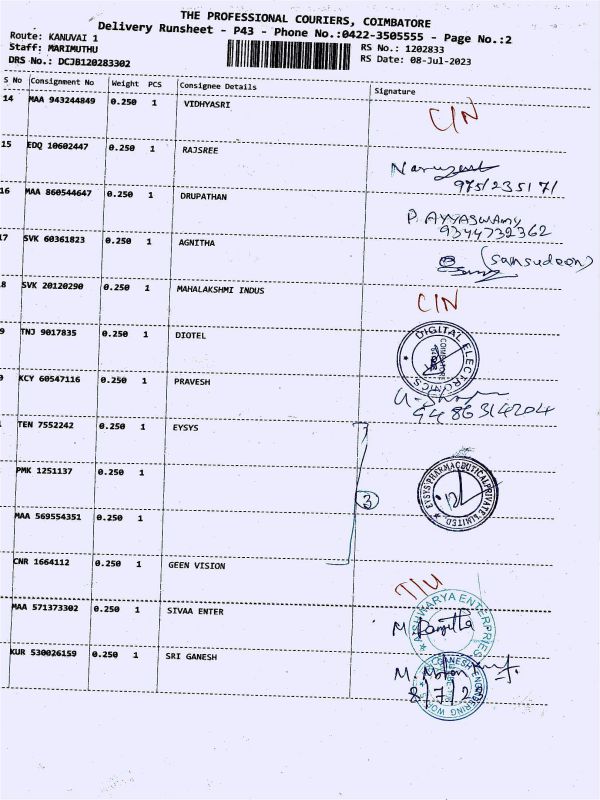 THE PROFESSIONAL COURIERS, COIMBATORE
Delivery Runsheet - P43 - Phone No.:0422-3505555 - Page No.:2
Route: KANUVAI 1
Staff: MARIMUTHU RS No.: 1202833
DRS No.: DCJB120283302 RS Date: 08-Jul-2023
S No Consignment No Weight PCS Consignee Details Signature
14 MAA 943244849 0.250 1 VIDHYASRI C/N
15 EDQ 10602447 0.250 1 RAJSREE
975/235171
16 MAA 860544647 0.250 1 DRUPATHAN P. AYYASWAMY
9344732362
17 SVK 60361823 0.250 1 AGNITHA (Samsudeen)
8 SVK 20120290 0.250 1 MAHALAKSHMI INDUS C/N
9 TNJ 9017835 0.250 1 DIOTEL DIGITAL ELECTRONICS
KCY 60547116 0.250 1 PRAVESH
9486314204
TEN 7552242 0.250 1 EYSYS
PMK 1251137 0.250 1 3 EYSYS PHARMACEUTICAL PRIVATE LIMITED
MAA 569554351 0.250 1
CNR 1664112 0.250 1 GEEN VISION T/U
MAA 571373302 0.250 1 SIVAA ENTER AISHWARYA ENTERPRIES
M. Ranjitha
KUR 530026159 0.250 1 SRI GANESH M. Mohan
8/7/2